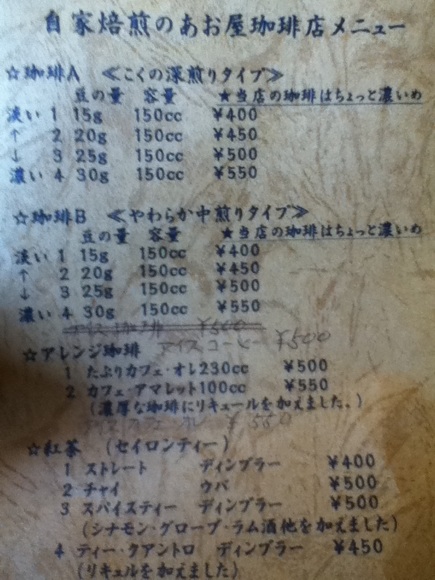 自家焙煎のあお屋珈琲店メニュー
☆珈琲A ≪こくの深煎りタイプ≫
豆の量 容量 ★当店の珈琲はちょっと濃いめ
淡い 1 15g 150cc ¥400
↑ 2 20g 150cc ¥450
↓ 3 25g 150cc ¥500
濃い 4 30g 150cc ¥550
☆珈琲B ≪やわらか中煎りタイプ≫
豆の量 容量 ★当店の珈琲はちょっと濃いめ
淡い 1 15g 150cc ¥400
↑ 2 20g 150cc ¥450
↓ 3 25g 150cc ¥500
濃い 4 30g 150cc ¥550
アイス珈琲 ¥500
アイスコーヒー ¥500
☆アレンジ珈琲
1 たぷりカフェ・オレ230cc ¥500
2 カフェ・アマレット100cc ¥550
(濃厚な珈琲にリキュールを加えました。)
アイスカフェ・オレ ¥550
☆紅茶 (セイロンティー)
1 ストレート ディンブラー ¥400
2 チャイ ウバ ¥500
3 スパイスティー ディンブラー ¥500
(シナモン・グローブ・ラム酒他を加えました)
4 ティー・クアントロ ディンブラー ¥450
(リキュルを加えました)